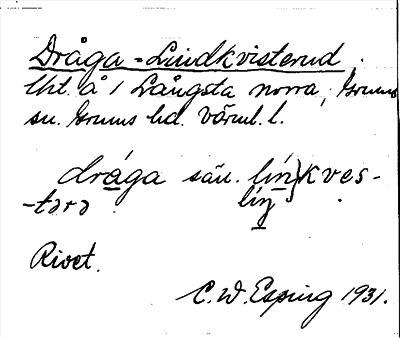 Dråga = Lindkvisterud,
tht. å i Långsta norra, Grums
sn. Grums hd. Värml. l.
dråga sän. lín}kves-
-tərə líŋ
Rivet.
C. W. Esping 1931.